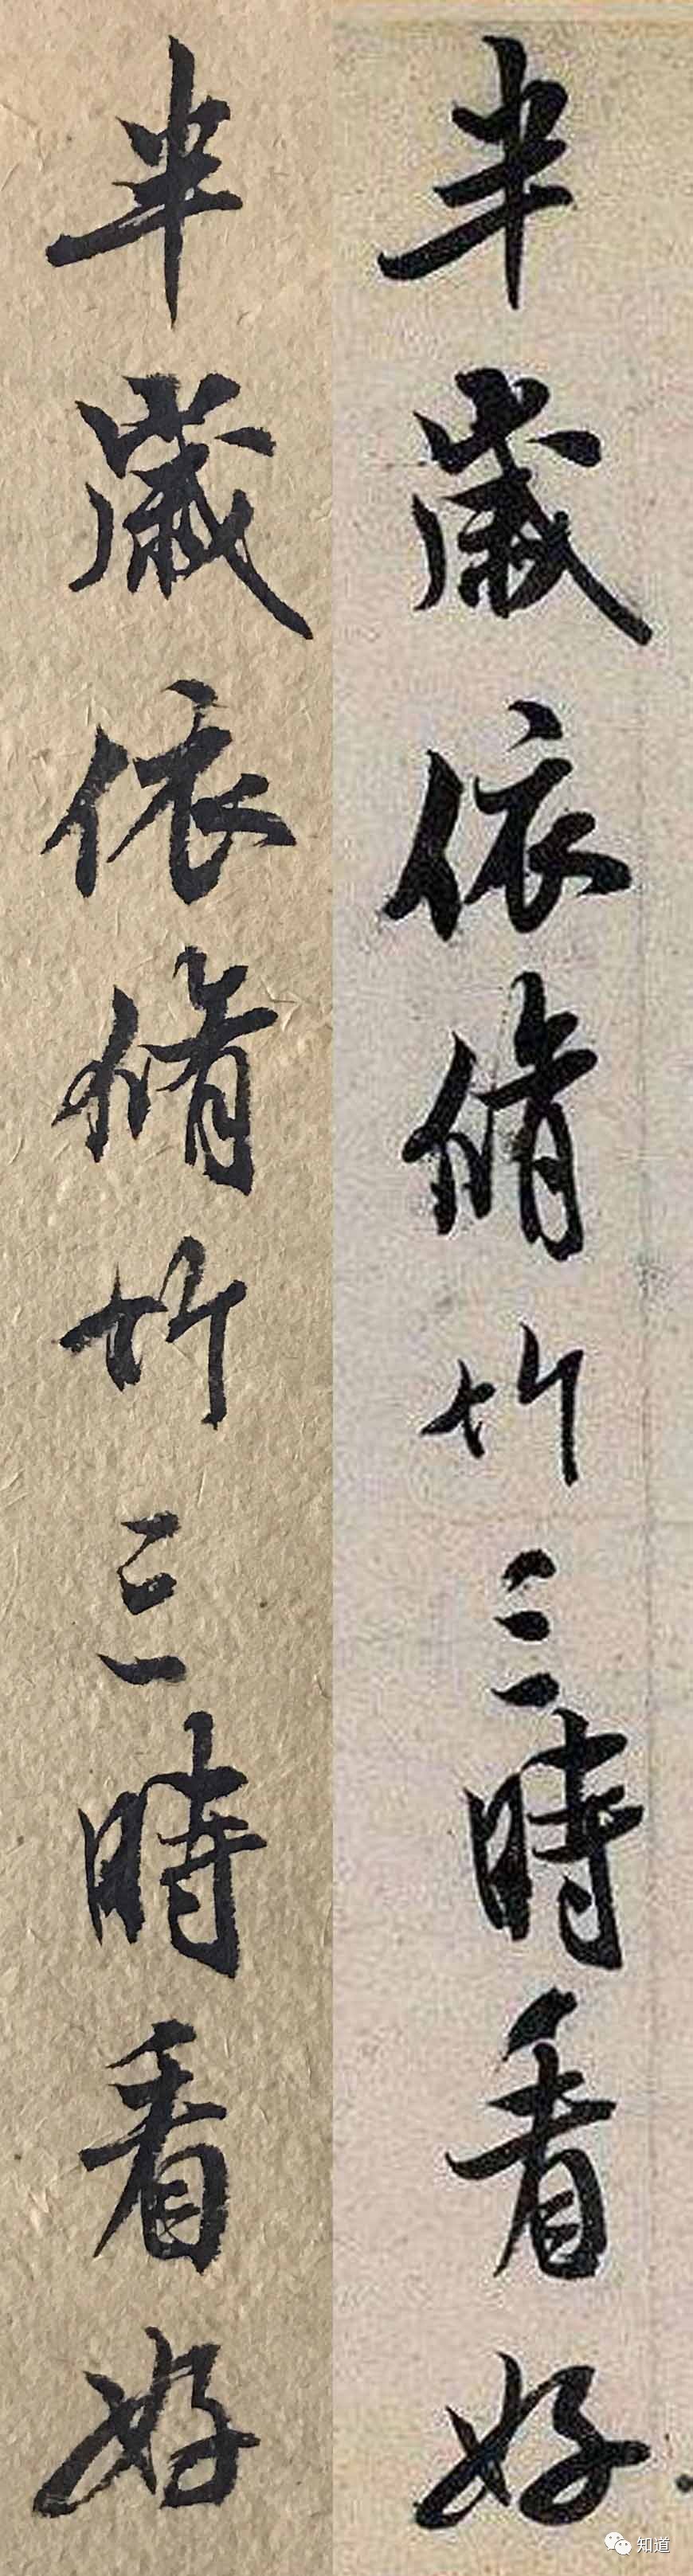 半歲依脩竹三時看好
半歲依脩竹三時看好
知道